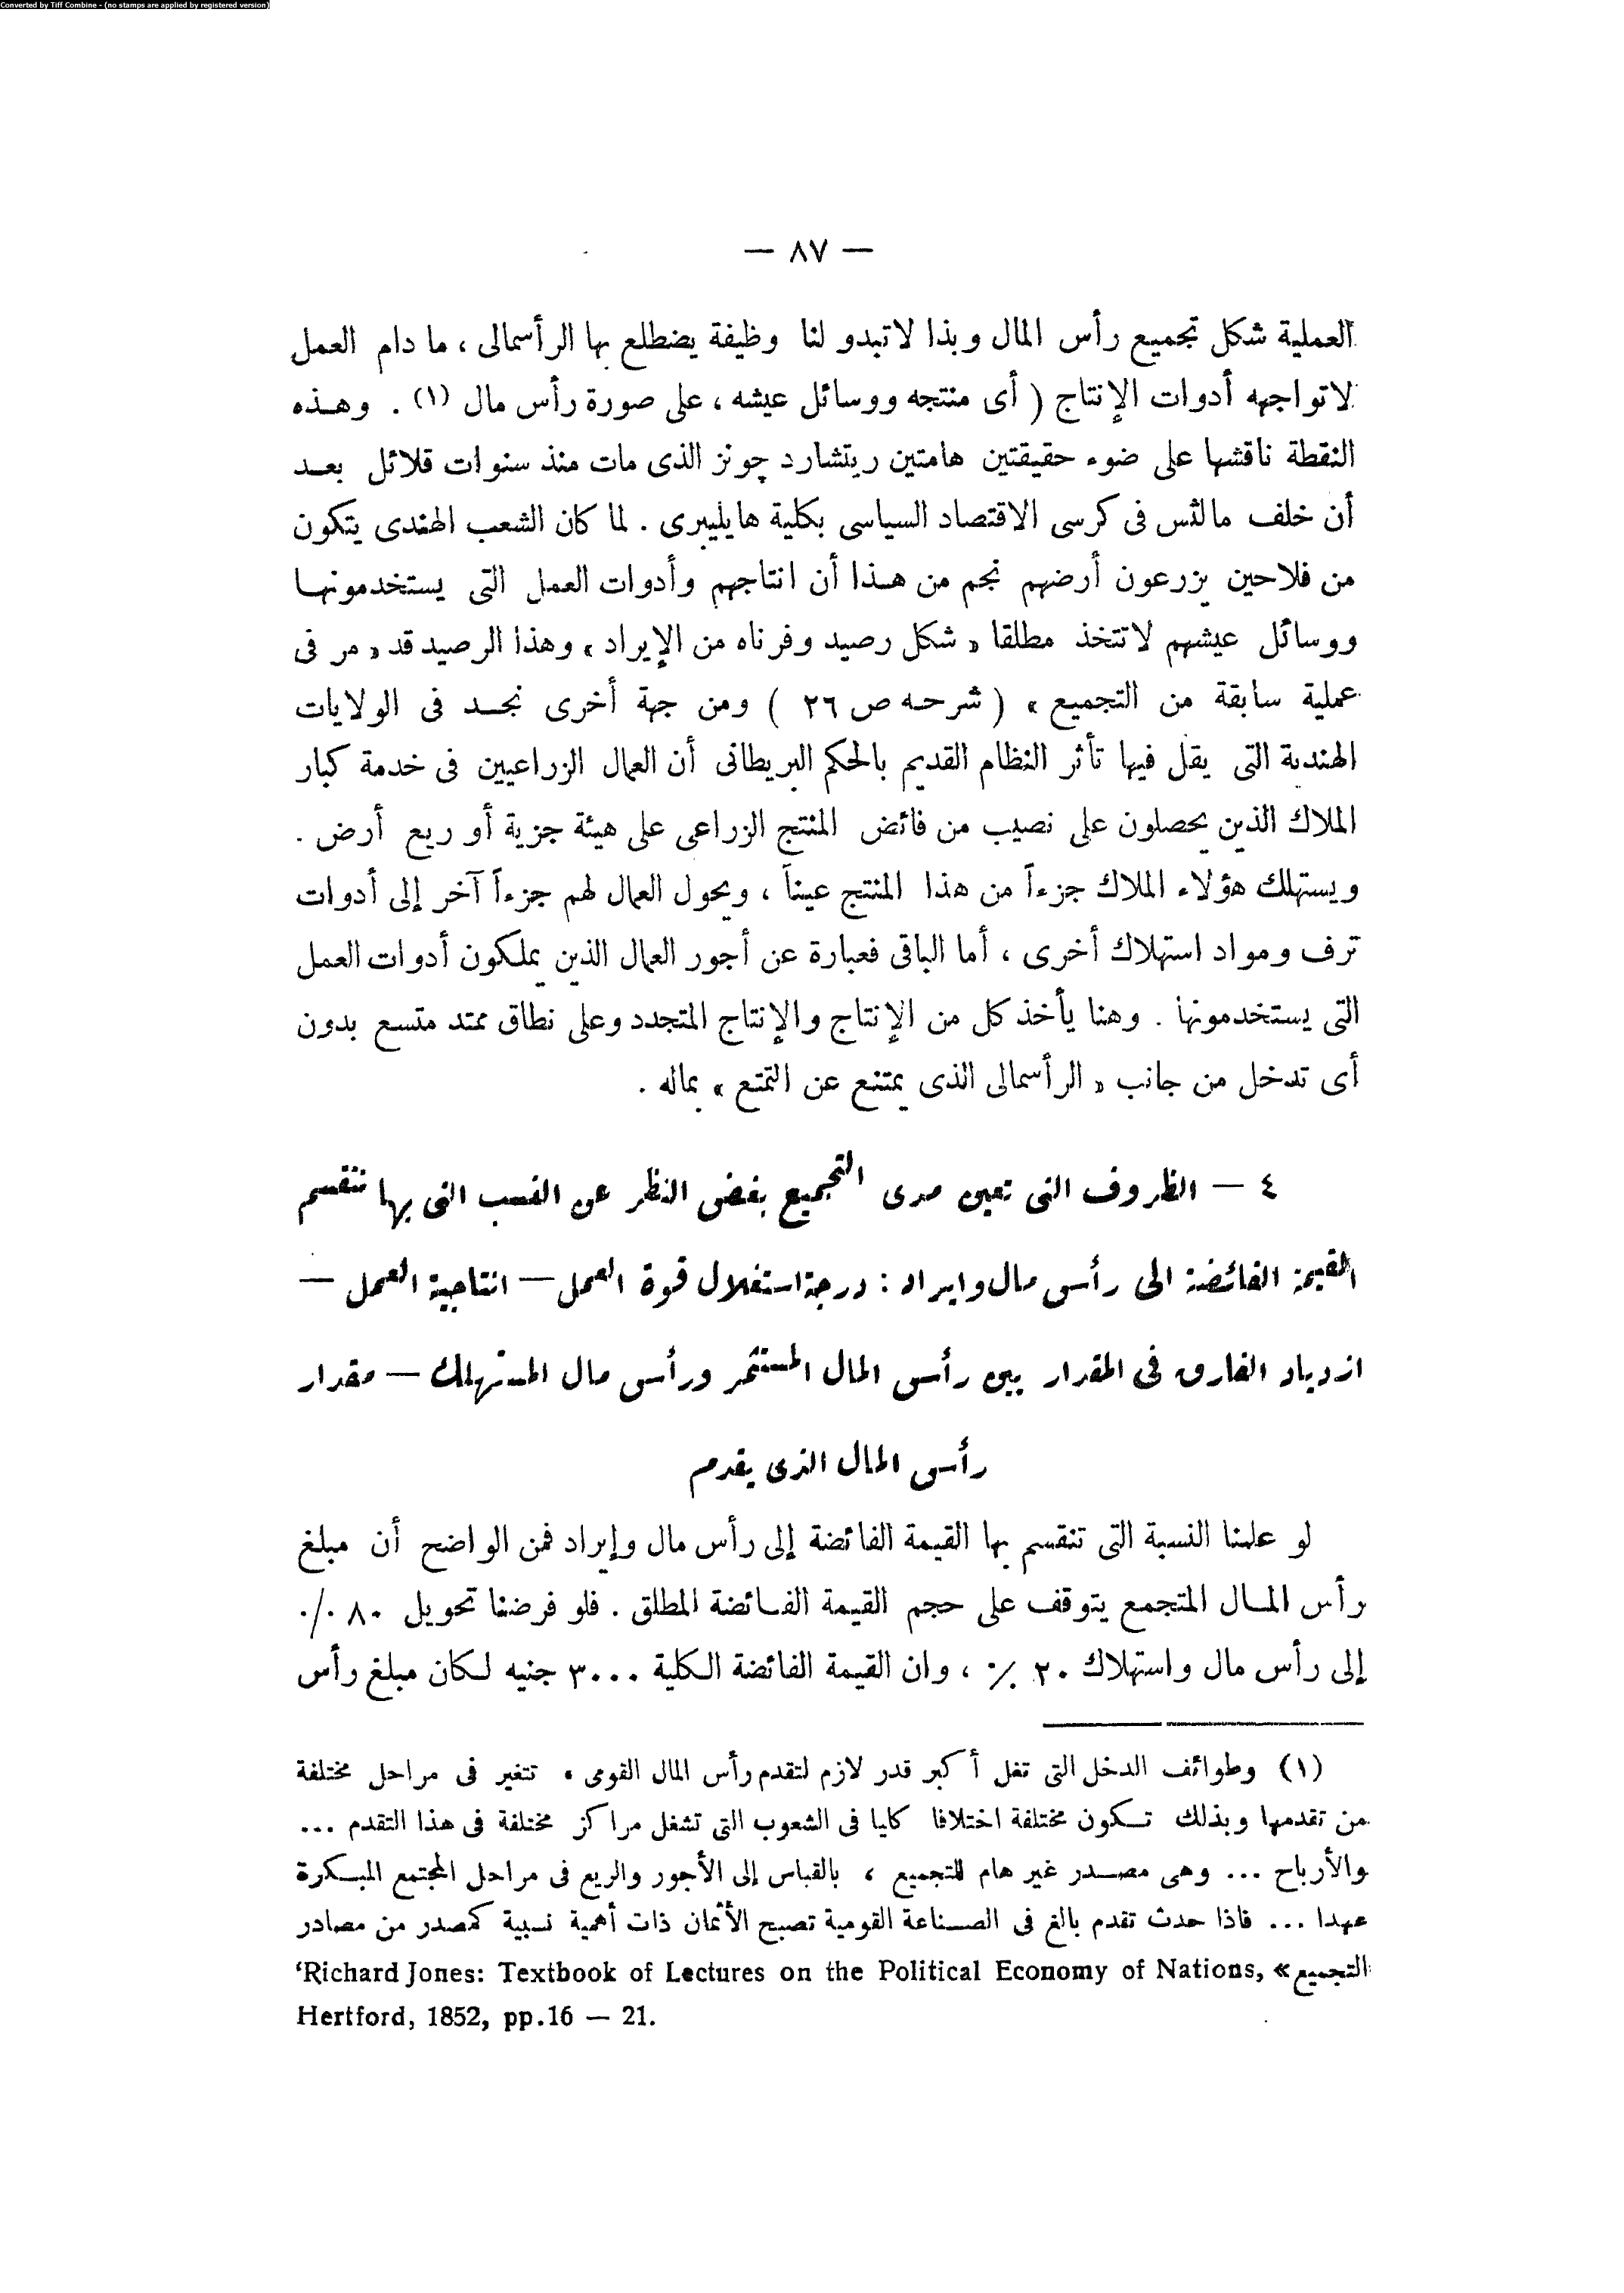 Converted by Tiff Combine - (no stamps are applied by registered version)
— ٨٧ —
العملية شكل تجميع رأس المال وبذا لاتبدو لنا وظيفة يضطلع بها الرأسمالى ، ما دام العمل
لاتواجهه أدوات الإنتاج ( أى منتجه ووسائل عيشه ، على صورة رأس مال (١) . وهـذه
النقطة ناقشها على ضوء حقيقتين هامتين ريتشارد چونز الذى مات منذ سنوات قلائل بعـد
أن خلف مالثس فى كرسى الاقتصاد السياسى بكلية هايليبرى . لما كان الشعب الهندى يتكون
من فلاحين يزرعون أرضهم نجم من هـذا أن انتاجهم وأدوات العمل التى يستخدمونهـا
ووسائل عيشهم لاتتخذ مطلقا « شكل رصيد وفرناه من الإيراد » وهذا الرصيد قد « مر فى
عملية سابقة من التجميع » ( شرحـه ص ٢٦ ) ومن جهة أخرى نجـد فى الولايات
الهندية التى يقل فيها تأثر النظام القديم بالحكم البريطانى أن العمال الزراعيين فى خدمة كبار
الملاك الذين يحصلون على نصيب من فائض المنتج الزراعى على هيئة جزية أو ريع أرض .
ويستهلك هؤلاء الملاك جزءاً من هذا المنتج عيناً ، ويحول العمال لهم جزءاً آخر إلى أدوات
ترف ومواد استهلاك أخرى ، أما الباقى فعبارة عن أجور العمال الذين يملكون أدوات العمل
التى يستخدمونها . وهنا يأخذ كل من الإنتاج والإنتاج المتجدد وعلى نطاق ممتد متسع بدون
أى تدخل من جانب « الرأسمالى الذى يمتنع عن التمتع » بماله .
٤ — الظروف التى تعين مدى التجميع بغض النظر عن النسب التى بها تنقسم
القيمة الفائضة الى رأس مال وايراد : درجة استغلال قوة العمل — انتاجية العمل —
ازدياد الفارق فى المقدار بين رأس المال المستثمر ورأس مال المستهلك — مقدار
رأس المال الذى يقدم
لو علمنا النسبة التى تنقسم بها القيمة الفائضة إلى رأس مال وإيراد فمن الواضح أن مبلغ
رأس المـال المتجمع يتوقف على حجم القيمة الفـائضة المطلق . فلو فرضنا تحويل ٨٠ ٠/٠
إلى رأس مال واستهلاك ٢٠ ٪ ، وان القيمة الفائضة الـكلية ٣٠٠٠ جنيه لـكان مبلغ رأس
(١) وطوائف الدخل التى تغل أكبر قدر لازم لتقدم رأس المال القومى ، تتغير فى مراحل مختلفة
من تقدمها وبذلك تـكون مختلفة اختلافا كليا فى الشعوب التى تشغل مراكز مختلفة فى هذا التقدم ...
والأرباح ... وهى مصـدر غير هام للتجميع ، بالقياس إلى الأجور والريع فى مراحل المجتمع المبـكرة
عهدا ... فاذا حدث تقدم بالغ فى الصـناعة القومية تصبح الأثمان ذات أهمية نسبية كمصدر من مصادر
التجميع» ‘Richard Jones: Textbook of Lectures on the Political Economy of Nations,
Hertford, 1852, pp.16 — 21.